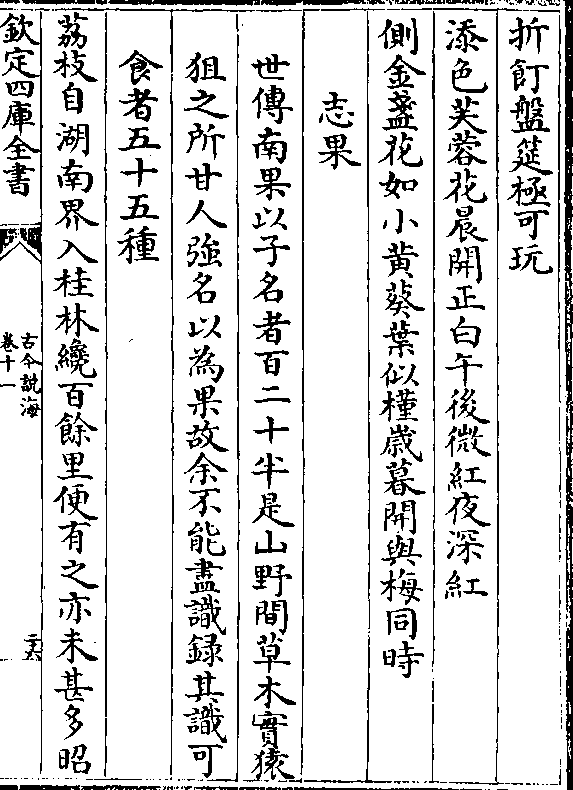 折飣盤筵極可玩
添色芙蓉花晨開正白午後微紅夜深紅
側金盞花如小黄葵葉似槿歳暮開與梅同時
志果
世傳南果以子名者百二十半是山野間草木實猿
狙之所甘人強名以為果故余不能盡識録其識可
食者五十五種
荔枝自湖南界入桂林纔百餘里便有之亦未甚多昭
欽定四庫全書
古今説海
卷十一
二六